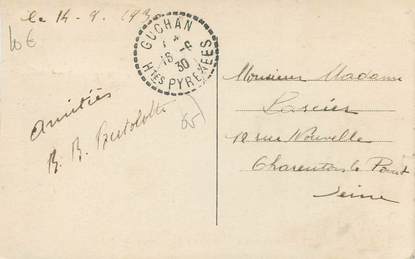 le 14-9-1930
10€
GUCHAN
16-9
30
Htes PYRENEES
Amitiés
B. B. Bertolotti
65
Monsieur Madame
12 rue Nouvelle
Charenton le Pont
Seine